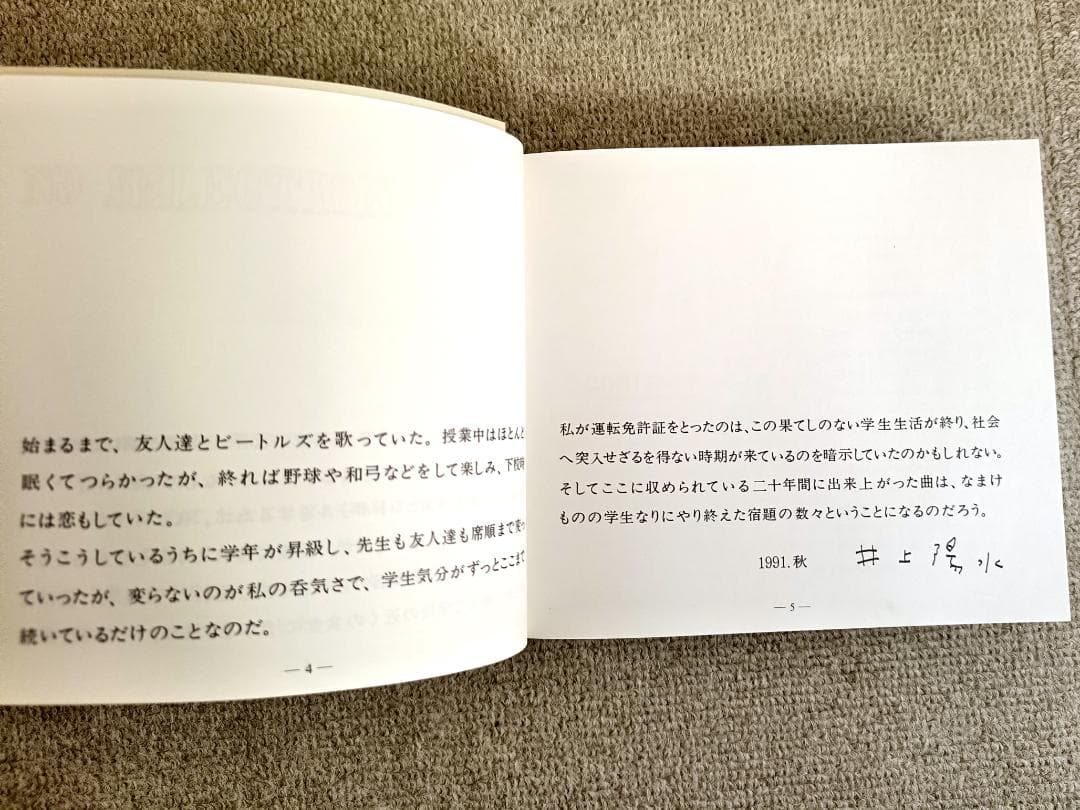 始まるまで、友人達とビートルズを歌っていた。授業中はほとんど
眠くてつらかったが、終れば野球や和弓などをして楽しみ、下校時
には恋もしていた。
そうこうしているうちに学年が昇級し、先生も友人達も席順まで変っ
ていったが、変らないのが私の呑気さで、学生気分がずっとここまで
続いているだけのことなのだ。
— 4 —
私が運転免許証をとったのは、この果てしのない学生生活が終り、社会
へ突入せざるを得ない時期が来ているのを暗示していたのかもしれない。
そしてここに収められている二十年間に出来上がった曲は、なまけ
ものの学生なりにやり終えた宿題の数々ということになるのだろう。
1991. 秋 井上陽水
— 5 —